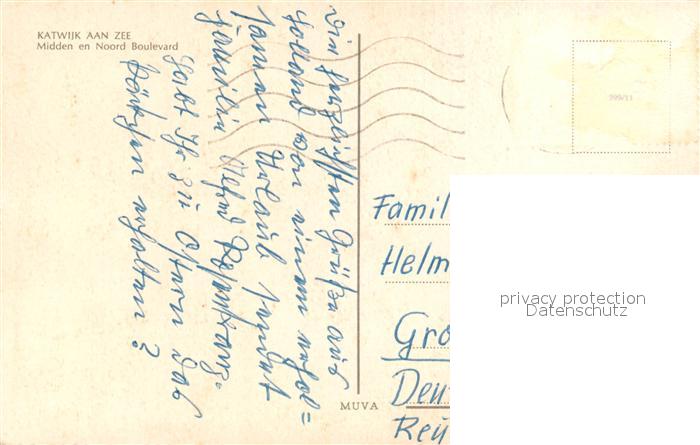 KATWIJK AAN ZEE
Midden en Noord Boulevard
Die herzlichsten Grüße aus
Holland von einem erhol=
samen Urlaub sendet
Familie
Habt Ihr zu Ostern das
Kärtchen erhalten?
MUVA
999/11
Famil
Helm
Gro
Deu
privacy protection
Datenschutz